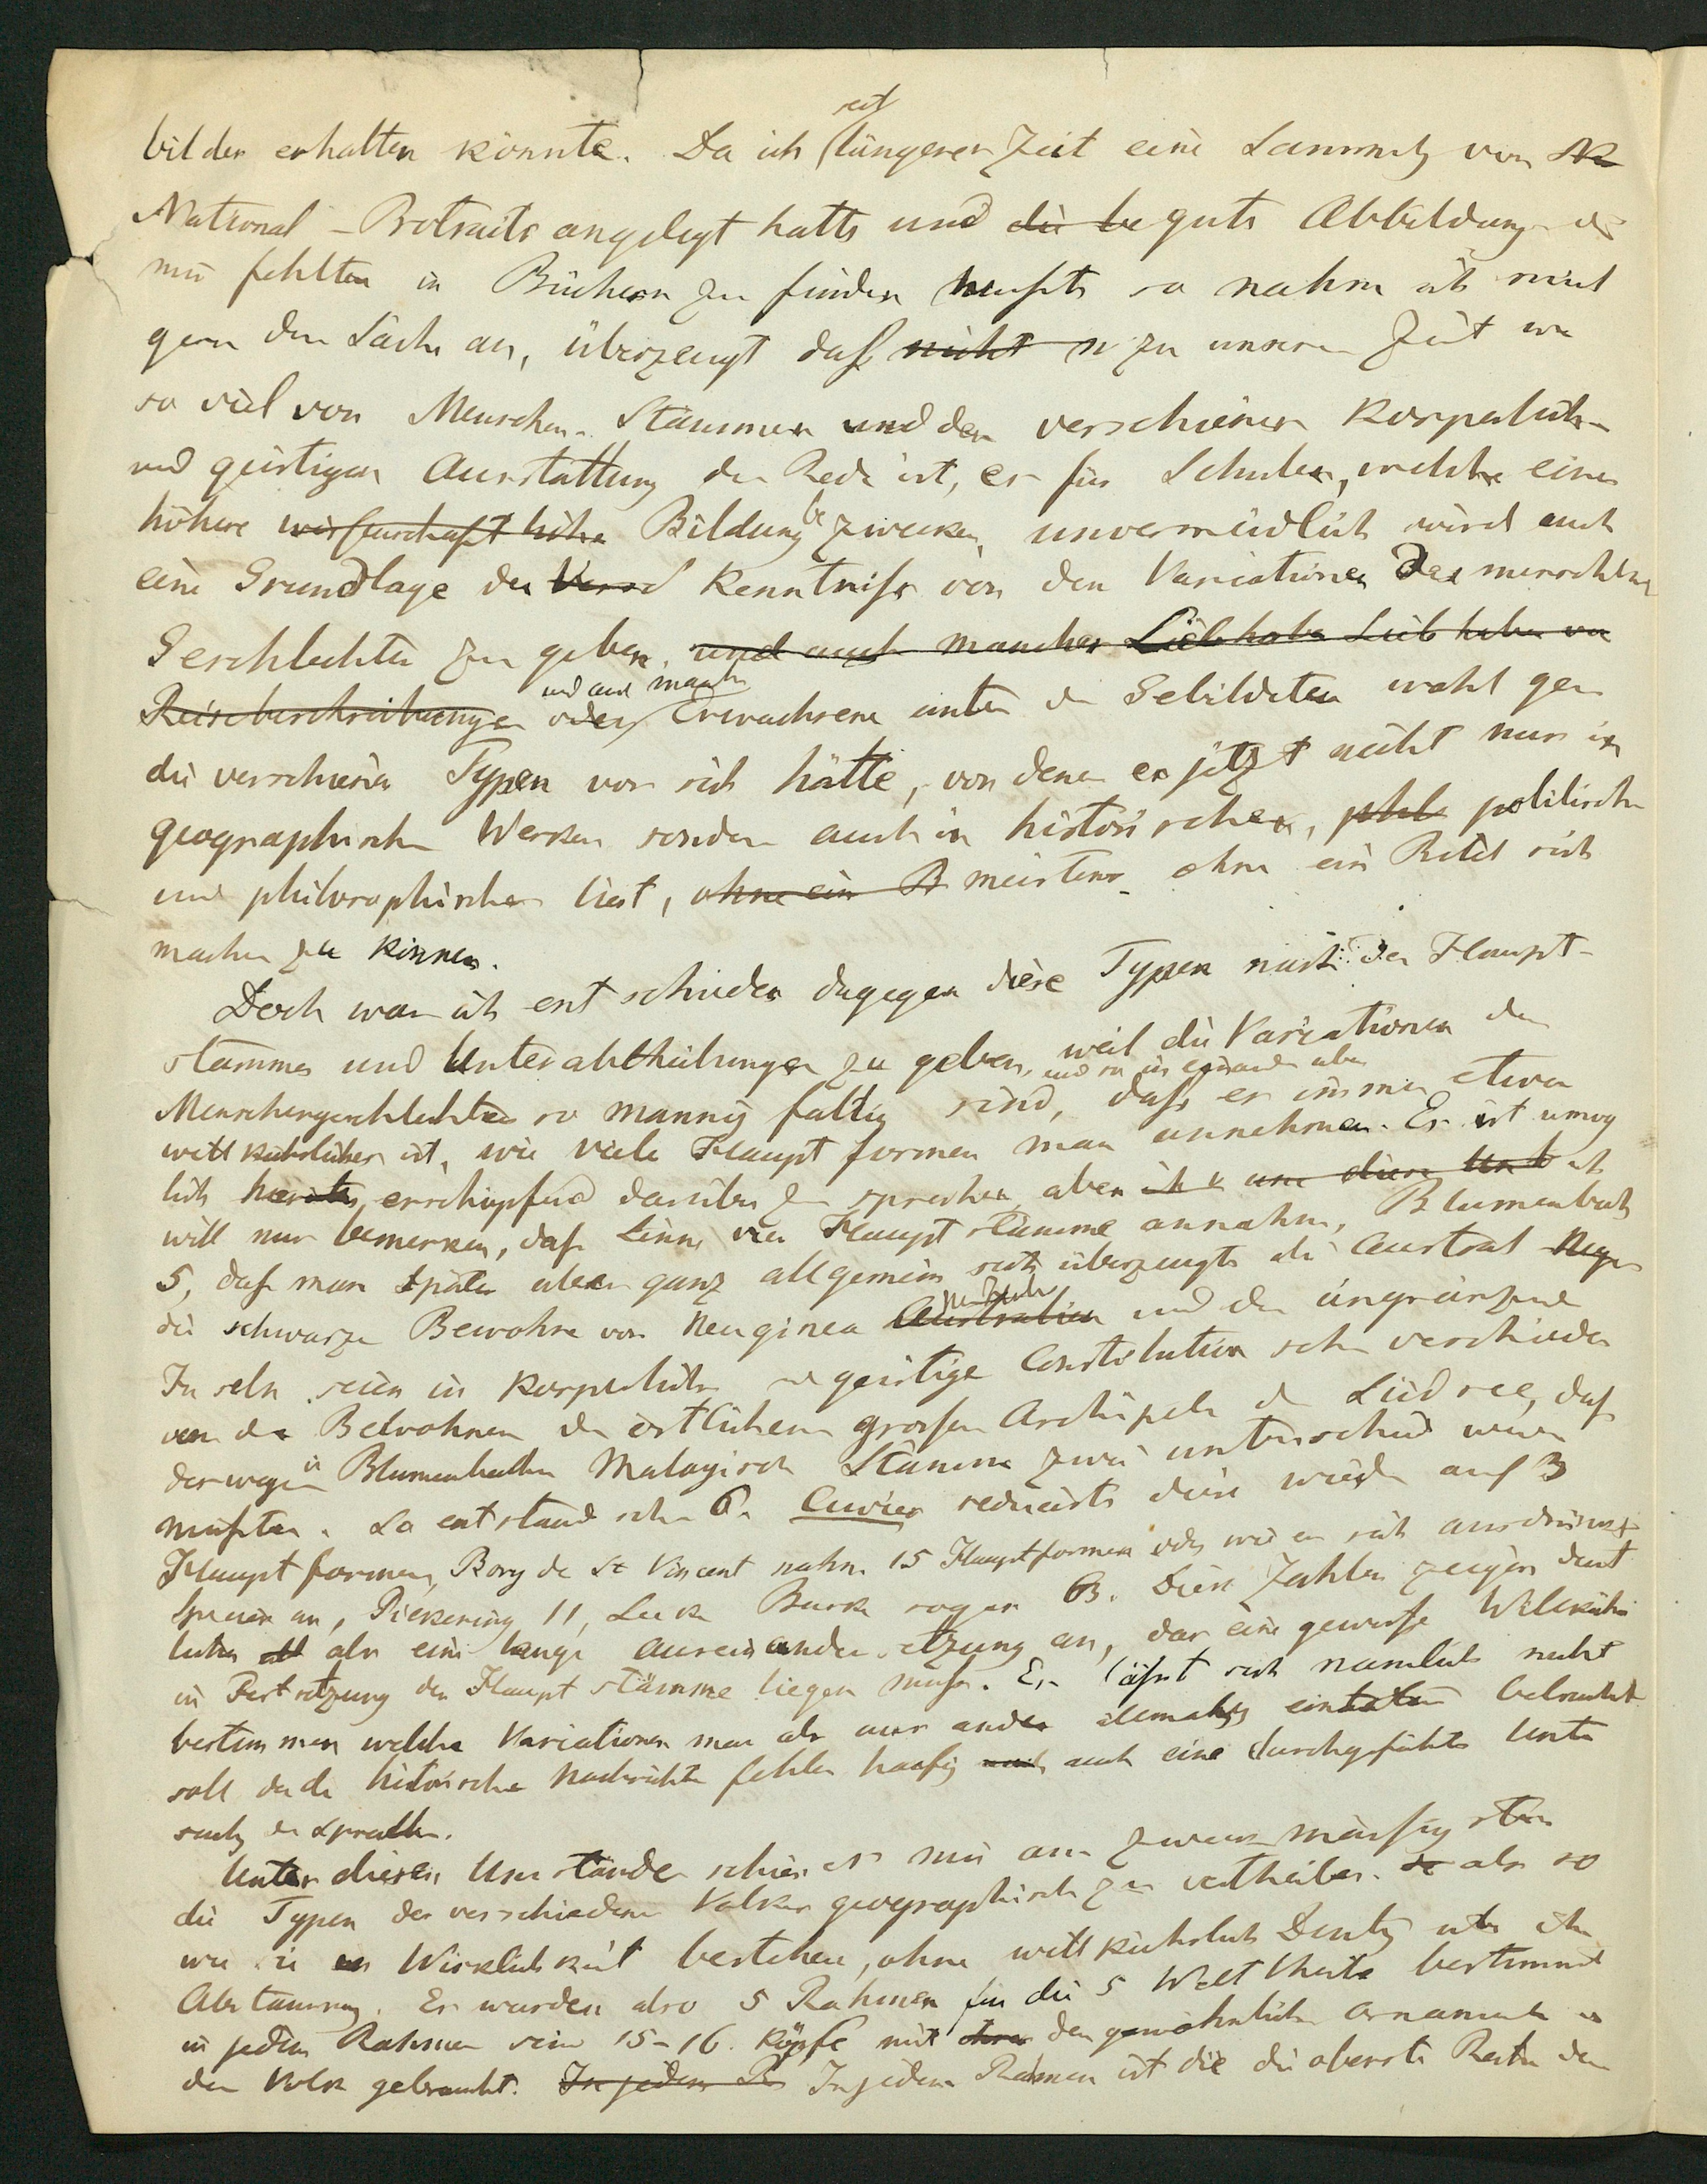 seit
bilder erhalten könnte. Da ich längerer Zeit eine Sammlg von
National-Portraits angelegt hatte und die be gute Abbildung die
mir fehlten in Büchern zu finden wußte so nahm ich mich
gern der Sache an, überzeugt daß nicht n zu unserer Zeit wo
so viel von Menschen-Stämmen und der verschienen Korperlichen
und geistigen Ausstattung die Rede ist, es für Schulen, welche eine
höhere wissenschaft höhe Bildung bezwecken, unvermeidlich wird auch
eine Grundlage der Versd Kenntniss von den Variationen des menschlichen
Geschlechtes zu geben. und auch mancher Liebhabe Lieb haber von
Reisebeschreibungen oder und auch manche Erwachsene unter den Gebildeten wohl gern
die verschienen Typen vor sich hätte, von denen er jetzt nicht nur in
geographischen Werken sondern auch in historischen, phil politischen
und philosophischen liest, ohne ein B meistens ohne ein Bild sich
machen zu können.
Doch war ich entschieden dagegen diese Typen nach den Haupt-
stammes und Unterabtheilungen zu geben, weil die Variationen des
und so in einander über
Menschengeschlechtes so mannig faltig sind, dass es immer etwas
willkührliches ist, wie viele Haupt formen man annehmen. Es ist unmög
lich hier erschöpfend darüber zu sprechen, aber ich
will nur bemerken, daß Linné vier Hauptstämme annahm, Blumenbach
5, daß man später aber ganz allgemein sich überzeugte die Austral Neger
die schwarzen Bewohner von Neuginea Australien und der angränzende
Inseln seien in korperlicher und geistiger Constitution sehr verschieden
von den Bewohnern der östlichen grossen Archipele der Südsee, daß
deswegen in Blumenbachs Malayisch Stamme zwei unterschied werden
mußten. So entstanden schon 6. Cuvier reducirte diese wieder auf 3
Hauptformen, Bory de St Vincent nahm 15 Hauptformen oder wie er sich ausdrückt
Species an, Pickering 11, Luke Burke sogar 63. Diese Zahlen zeigen deut
licher als eine lange Auseinandersetzung an, das eine gewisse Willkühr
in Festsetzung der Hauptstämme liegen muß. Es läßt sich namlich nicht
bestimmen welche Variationen man als aus andern ehemals betrachten
soll, da die historische Nachrichten fehlen haufig auch eine durchgeführte Unter
suchg der Sprachen.
Unter diesen Umständen schien es mir am zweckmässigsten
die Typen der verschiedene Volker geographisch zu vertheilen. so als so
wie sie in Wirklichkeit bestehen, ohne willkührlich Deutg uber ihre
Abstammg. Es wurden also 5 Rahmen für die 5 Welttheile bestimmt
in jedem Rahmen sein 15-16. Köpfe mit ihren den gewöhnlichen Ornamente in
den Volk gebraucht. In jedem R In jedem Rahmen ist die die oberste Reihe den